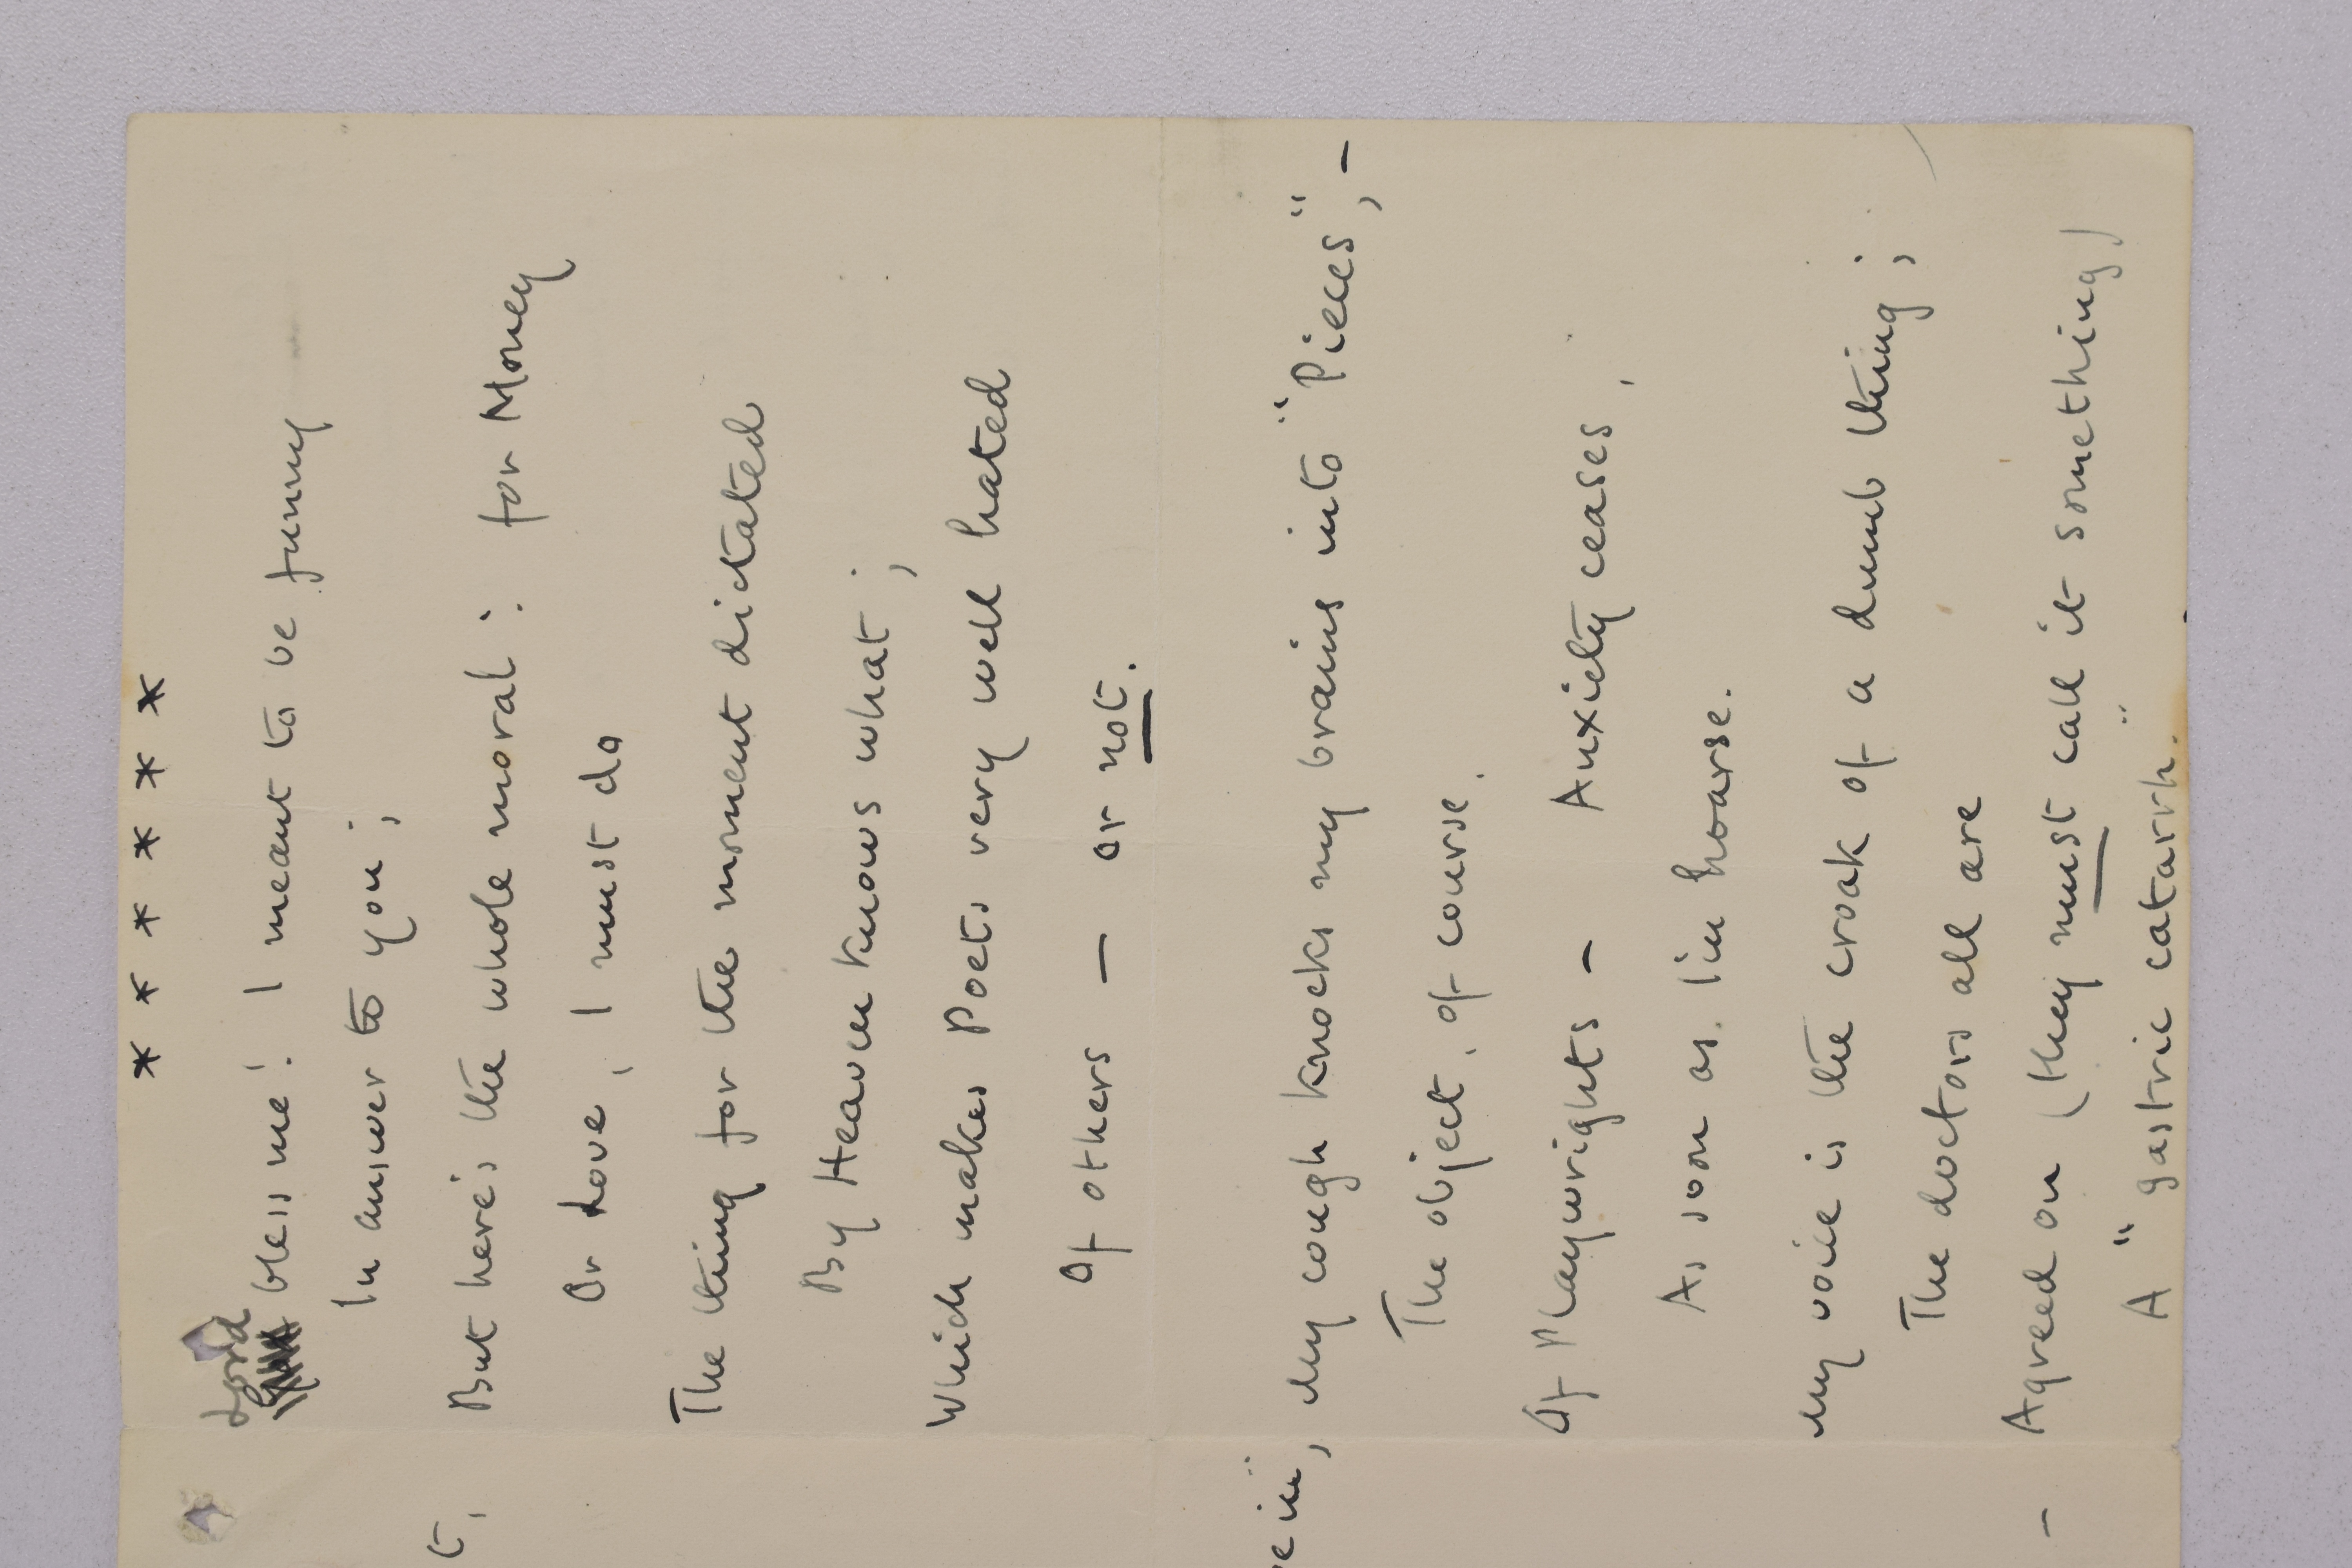 * * * * * *
Lord bless me! I meant to be funny
In answer to you;
But here's the whole moral: for Money
Or Love, I must do
The thing for the moment dictated
By Heaven knows what;
Which makes Poets very well hated
Of others — or not.
My cough knocks my brains into "Pieces", –
The object, of course,
Of Playwrights – Anxiety ceases,
As soon as I'm hoarse.
My voice is the croak of a dumb thing;
The doctors all are
Agreed on (they must call it something)
A "gastric catarrh."